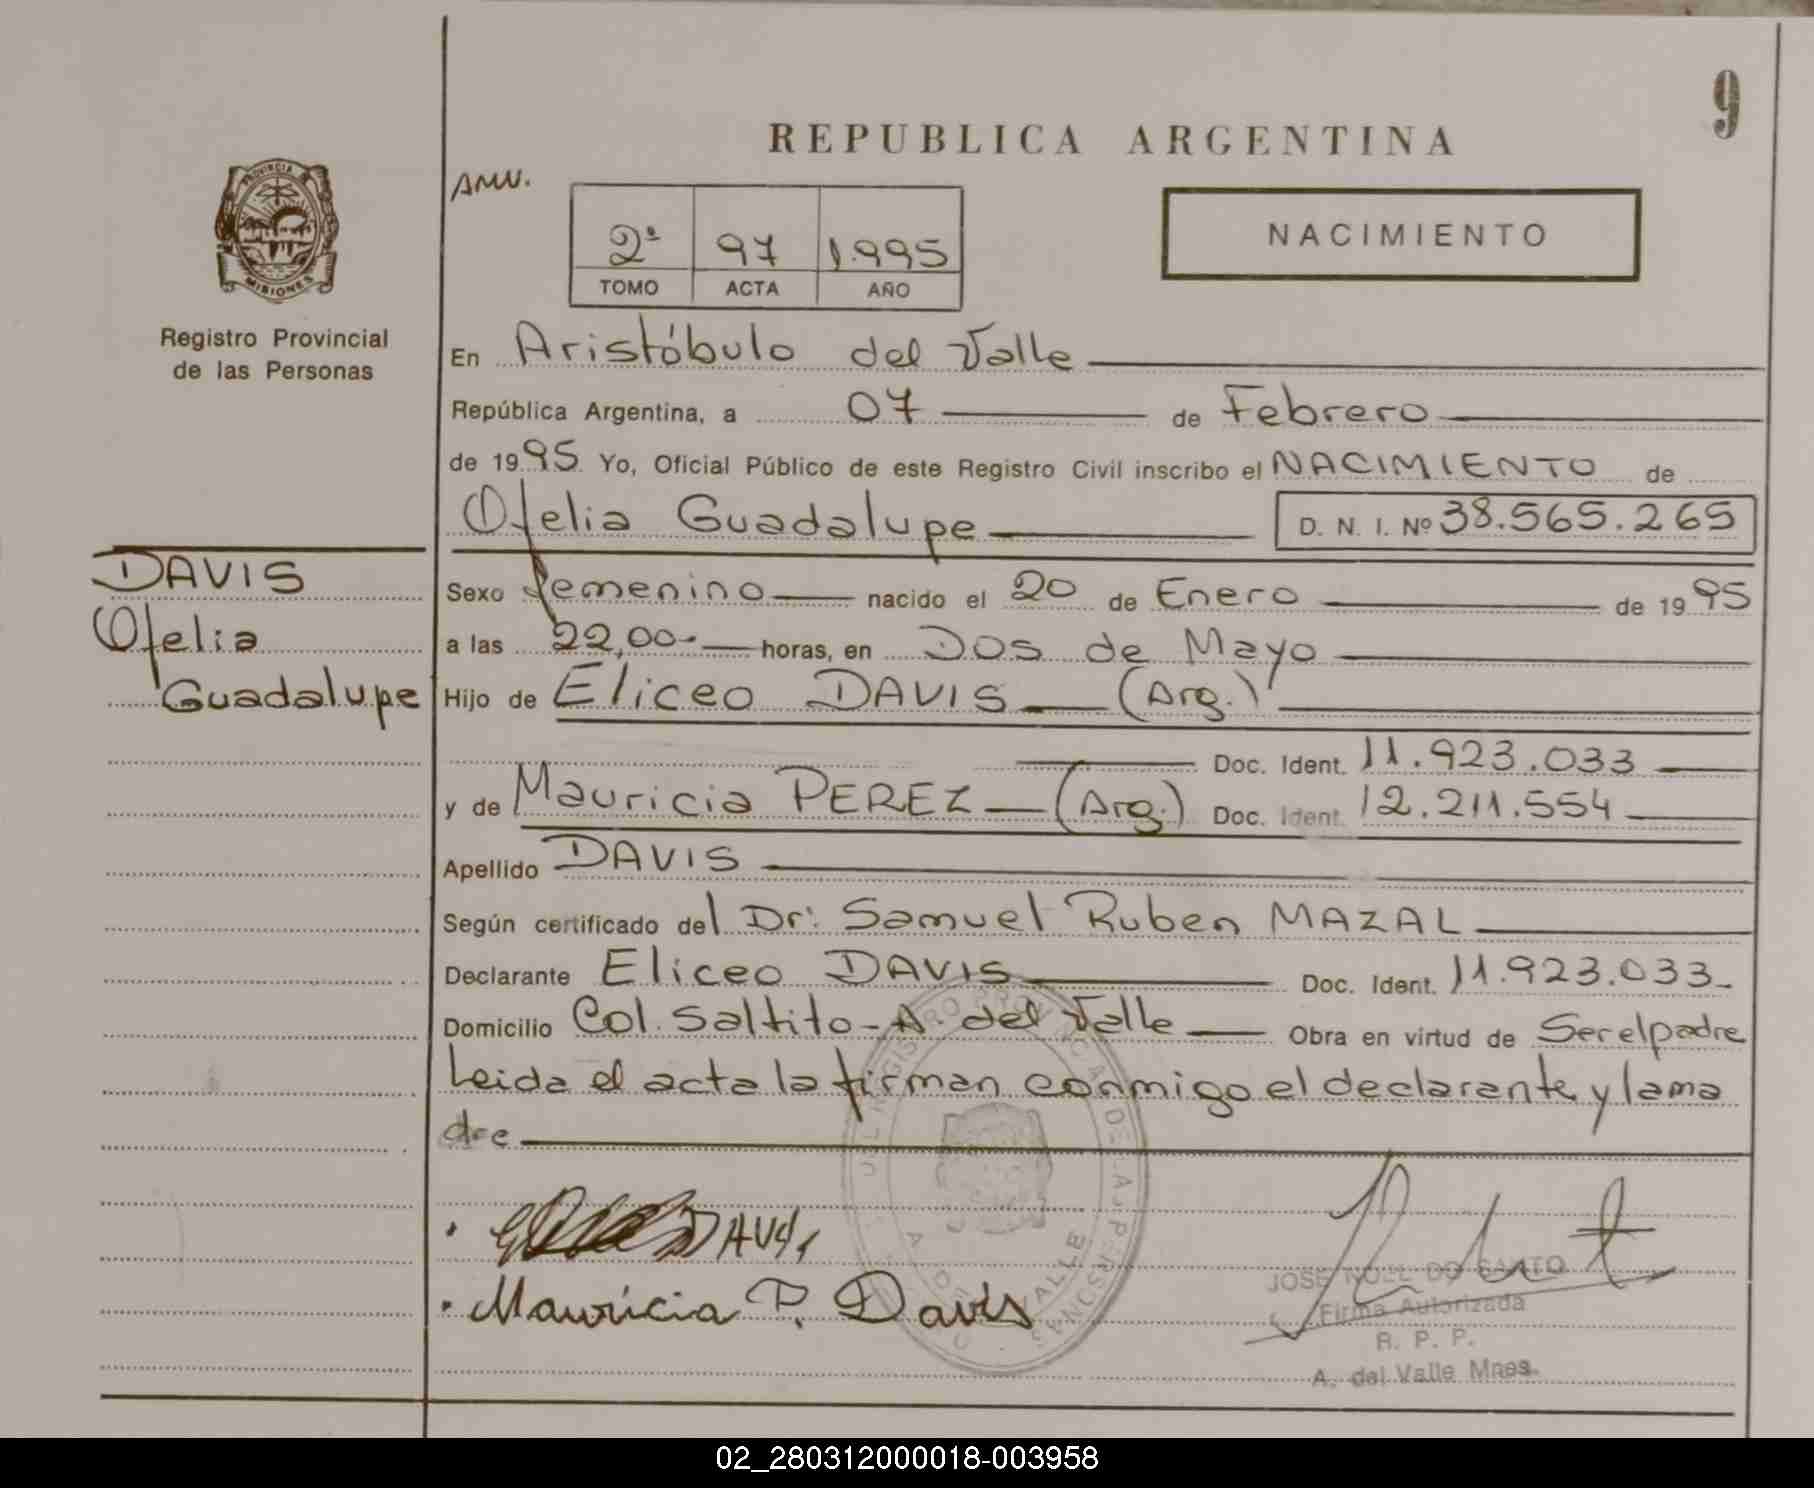 9
REPUBLICA ARGENTINA
PROVINCIA
MISIONES
Registro Provincial
de las Personas
AMV.
2ª 97 1.995
TOMO ACTA AÑO
NACIMIENTO
En Aristóbulo del Valle
República Argentina, a 07 de Febrero
de 1995. Yo, Oficial Público de este Registro Civil inscribo el NACIMIENTO de
Ofelia Guadalupe D. N. I. Nº 38.565.265
DAVIS
Ofelia
Guadalupe
Sexo femenino nacido el 20 de Enero de 1995
a las 22,00- horas, en Dos de Mayo
Hijo de Eliceo DAVIS (Arg.)
Doc. Ident. 11.923.033
y de Mauricia PEREZ (Arg.) Doc. Ident. 12.211.554
Apellido DAVIS
Según certificado del Dr: Samuel Ruben MAZAL
Declarante Eliceo DAVIS Doc. Ident. 11.923.033.
Domicilio Col. Saltito - A. del Valle Obra en virtud de Ser el padre
Leida el acta la firman conmigo el declarante y la ma
dre
DAVIS
Mauricia P. Davis
JOSE NOEL DO SANTO
Firma Autorizada
R. P. P.
A. del Valle Mnes.
02_280312000018-003958